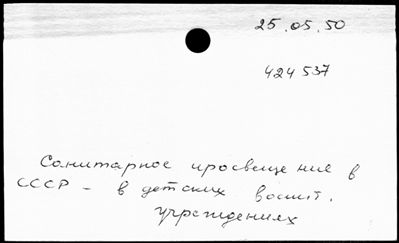 25.05.50
424537
Санитарное просвещение в
СССР – в детских воспит.
учреждениях